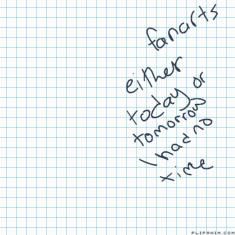 fanarts
either
today or
tomorrow
I had no
time
FLIPANIM.COM